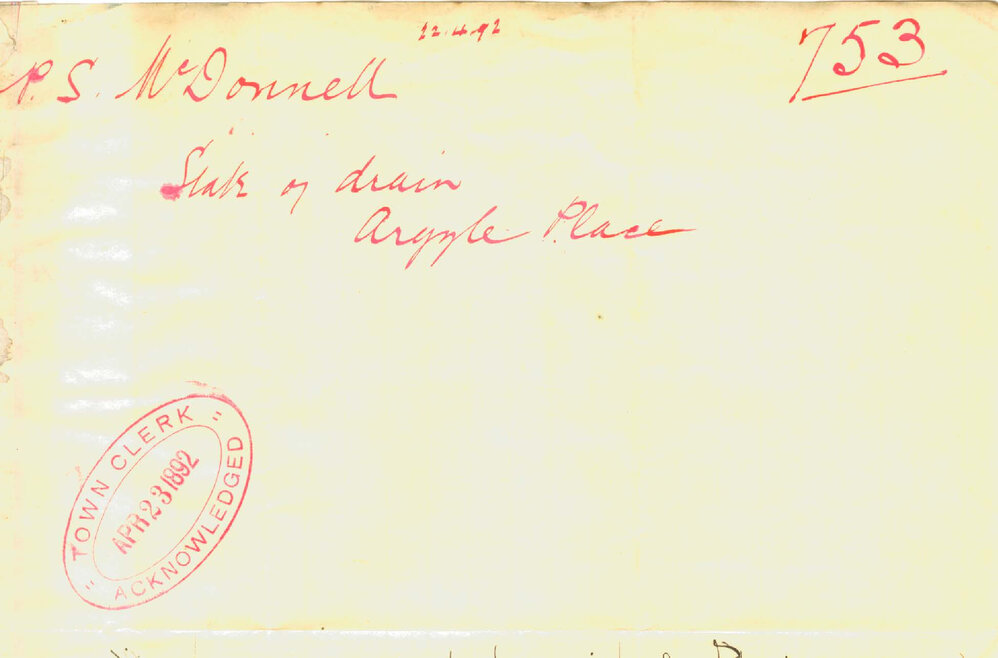 22.4.92
753
P. S. McDonnell
State of drain
Argyle Place
TOWN CLERK
APR 23 1892
ACKNOWLEDGED